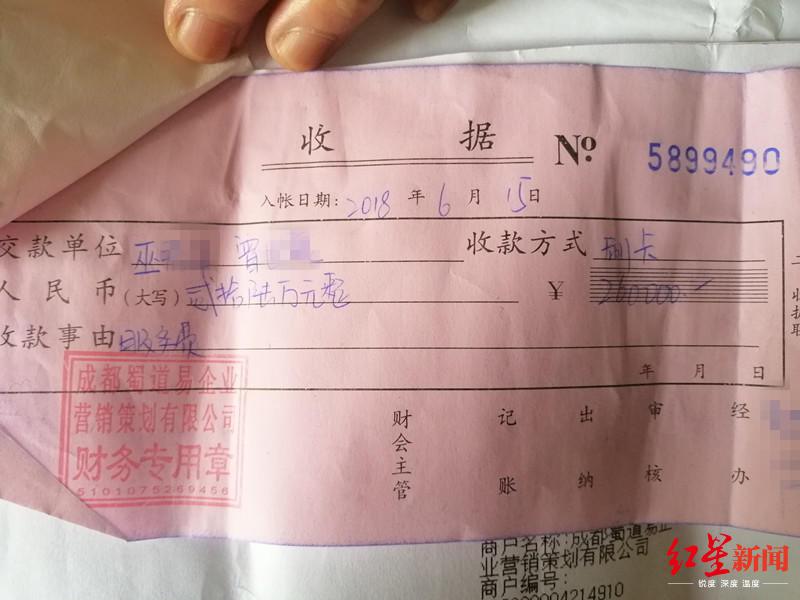 收 据 № 5899490
入帐日期: 2018 年 6 月 15 日
交款单位 巫 曾 收款方式 刷卡
人民币(大写) 贰拾陆万元整 ¥ 260000.-
收款事由 服务费
年 月 日
成都蜀道易企业
营销策划有限公司
财务专用章
5101075269456
财会主管 记账 出纳 审核 经办
商户名称:成都蜀道易企
业营销策划有限公司
商户编号:
红星新闻
锐度 深度 温度